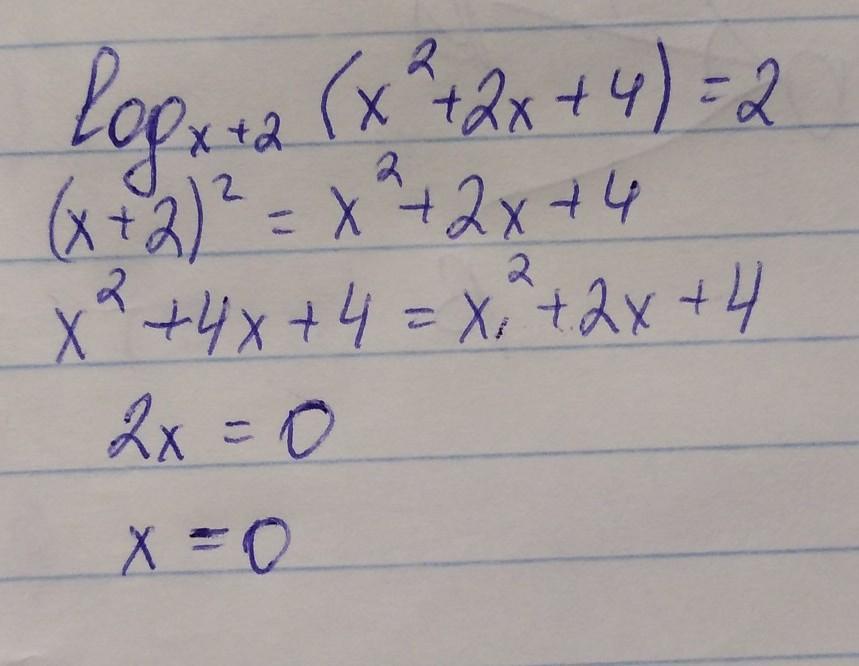 log_{x+2} (x² + 2x + 4) = 2
(x + 2)² = x² + 2x + 4
x² + 4x + 4 = x² + 2x + 4
2x = 0
x = 0